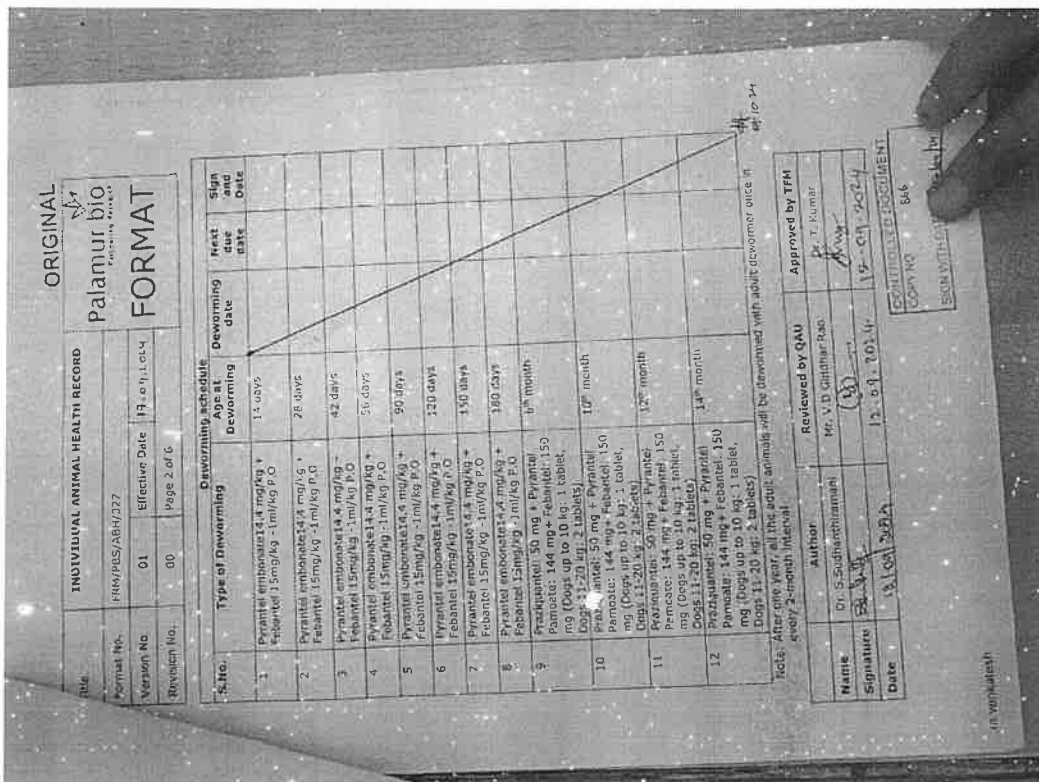 ORIGINAL
INDIVIDUAL ANIMAL HEALTH RECORD
Palamur bio
FORMAT
Title:
Format No. FRM/PBS/ABH/327
Version No. 01 Effective Date 19.09.2024
Revision No. 00 Page 2 of 6
Deworming schedule
S.No. Type of Deworming Age at Deworming Deworming date Next due date Sign and Date
1 Pyrantel embonate14.4 mg/kg + 14 days
Febantel 15mg/kg -1ml/kg P.O
2 Pyrantel embonate14.4 mg/kg + 28 days
Febantel 15mg/kg -1ml/kg P.O
3 Pyrantel embonate14.4 mg/kg + 42 days
Febantel 15mg/kg -1ml/kg P.O
4 Pyrantel embonate14.4 mg/kg + 56 days
Febantel 15mg/kg -1ml/kg P.O
5 Pyrantel embonate14.4 mg/kg + 90 days
Febantel 15mg/kg -1ml/kg P.O
6 Pyrantel embonate14.4 mg/kg + 120 days
Febantel 15mg/kg -1ml/kg P.O
7 Pyrantel embonate14.4 mg/kg + 150 days
Febantel 15mg/kg -1ml/kg P.O
8 Pyrantel embonate14.4 mg/kg + 180 days
Febantel 15mg/kg -1ml/kg P.O
9 Praziquantel: 50 mg + Pyrantel 8th month
Pamoate: 144 mg+ Febantel: 150
mg (Dogs up to 10 kg: 1 tablet,
Dogs 11-20 kg: 2 tablets)
10 Praziquantel: 50 mg + Pyrantel 10th month
Pamoate: 144 mg+ Febantel: 150
mg (Dogs up to 10 kg: 1 tablet,
Dogs 11-20 kg: 2 tablets)
11 Praziquantel: 50 mg + Pyrantel 12th month
Pamoate: 144 mg+ Febantel: 150
mg (Dogs up to 10 kg: 1 tablet,
Dogs 11-20 kg: 2 tablets)
12 Praziquantel: 50 mg + Pyrantel 14th month
Pamoate: 144 mg+ Febantel: 150
mg (Dogs up to 10 kg: 1 tablet,
Dogs 11-20 kg: 2 tablets)
10 24
Note: After one year all the adult animals will be dewormed with adult dewormer once in
every 2-month interval
Author Reviewed by QAU Approved by TFM
Name Dr. S.Sudhanthiramani Mr. V.D Giridhar Rao Dr. T. Kumar
Signature
Date 12.09.2024 19-09-2024
CONTROLLED DOCUMENT
COPY NO 866
SIGN WITH